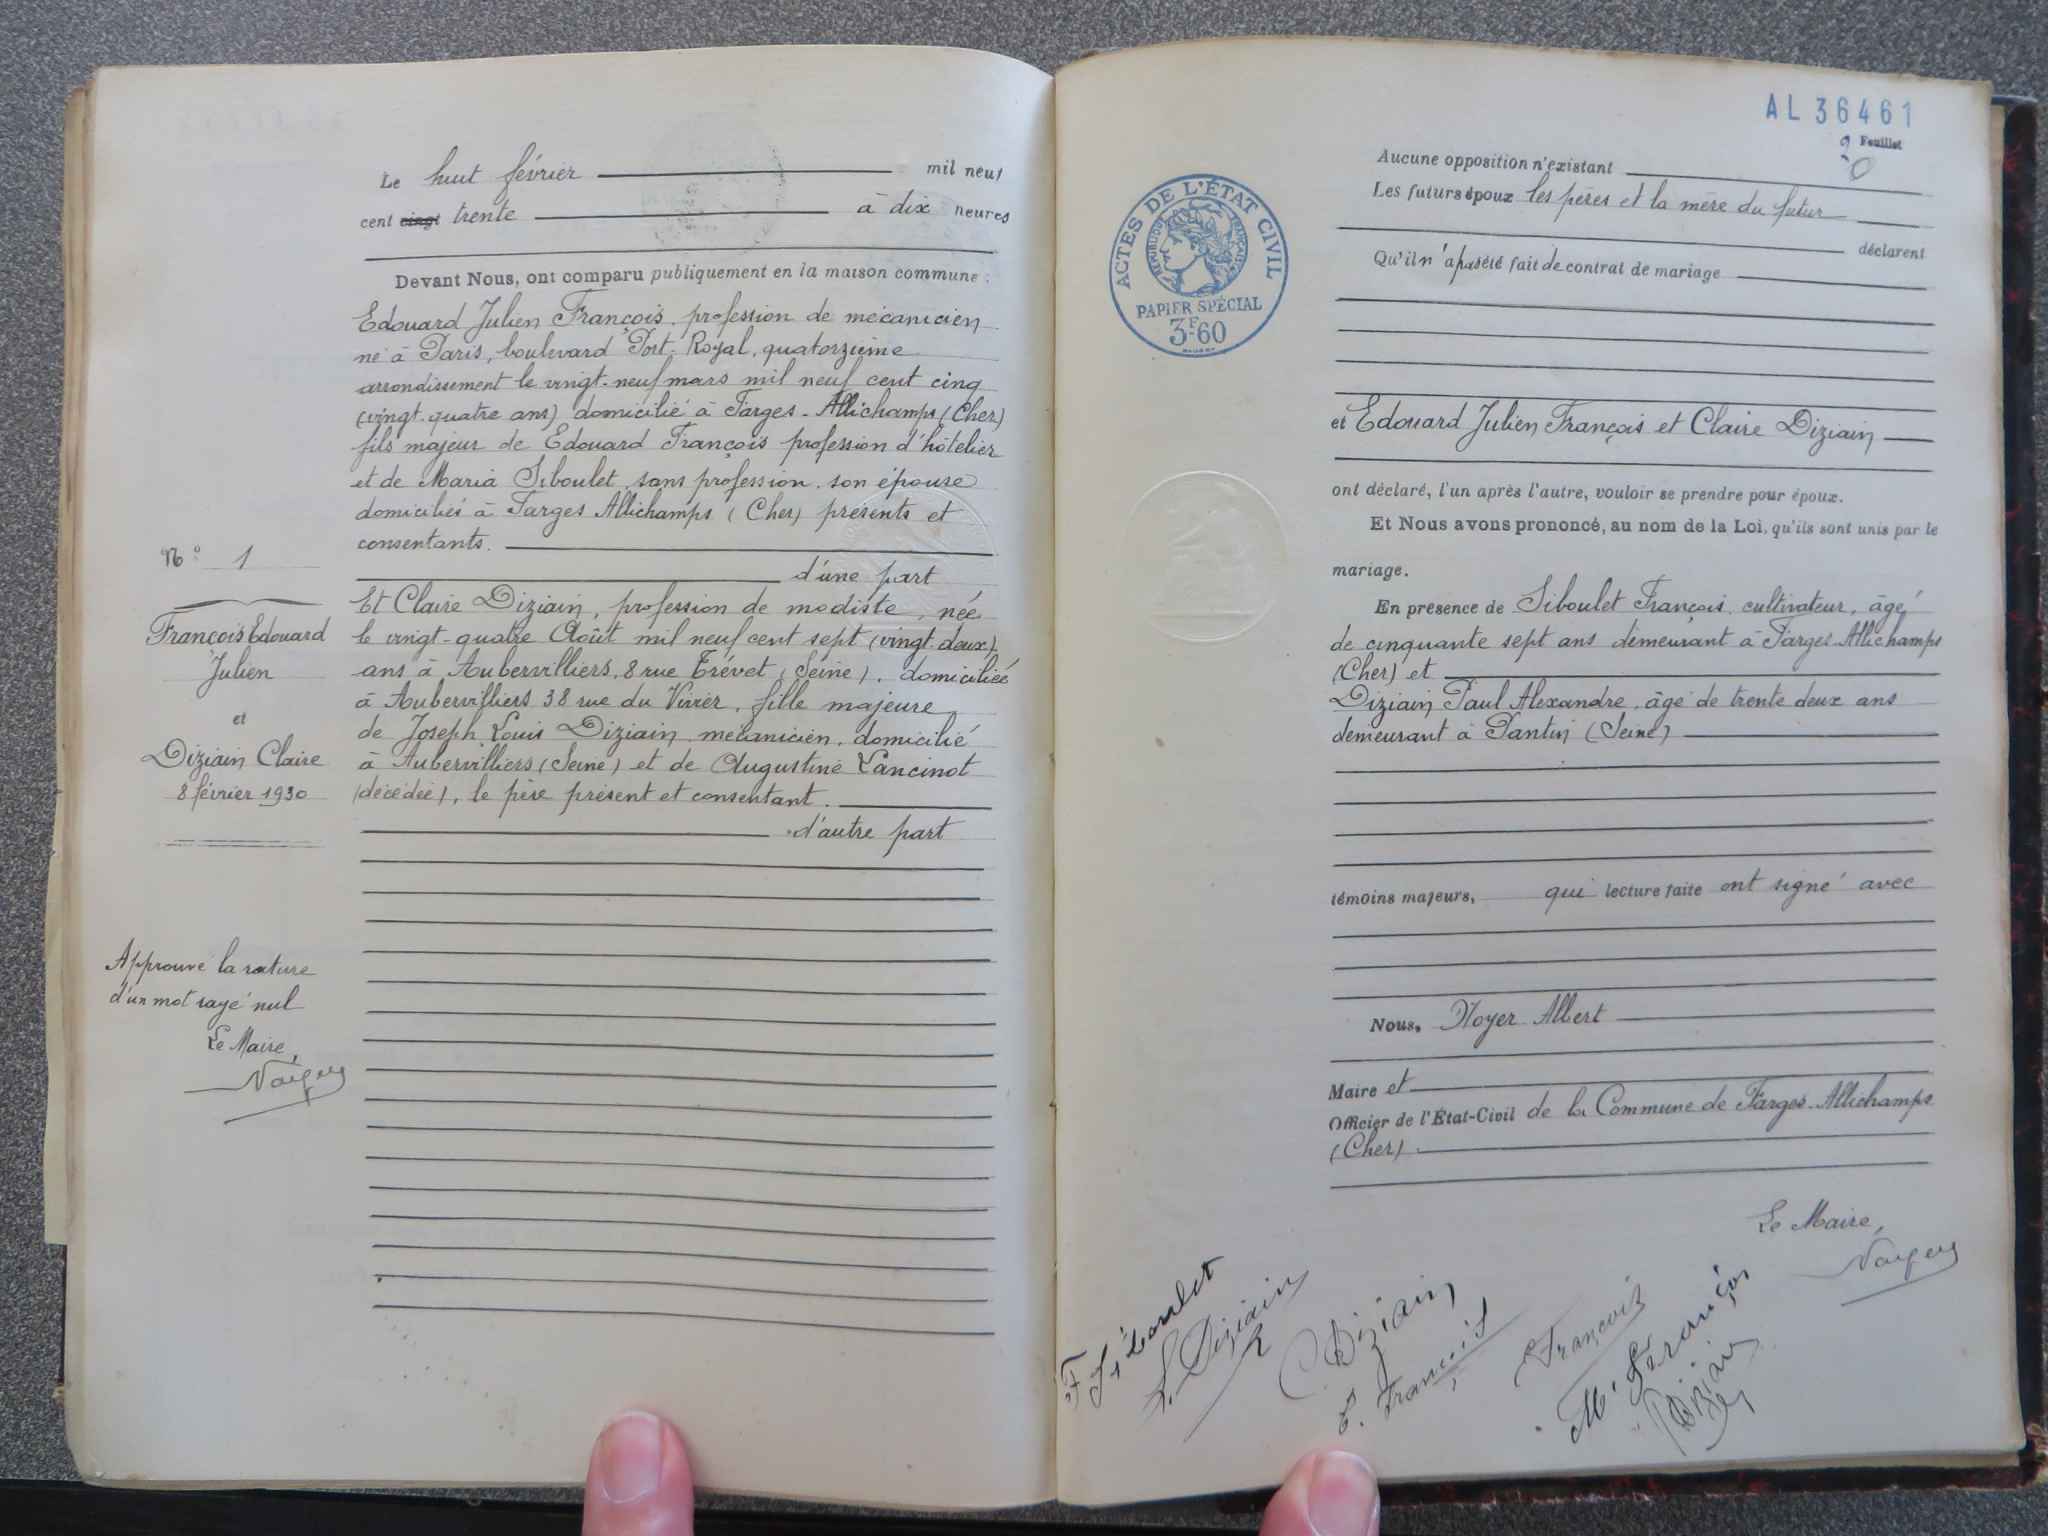 Le huit février mil neuf
cent vingt trente à dix heures
Devant Nous, ont comparu publiquement en la maison commune :
Edouard Julien François, profession de mécanicien
né à Paris, boulevard Port-Royal, quatorzième
arrondissement le vingt-neuf mars mil neuf cent cinq
(vingt-quatre ans) domicilié à Farges-Allichamps (Cher)
fils majeur de Edouard François profession d'hôtelier
et de Maria Siboulet, sans profession, son épouse
domiciliés à Farges Allichamps (Cher) présents et
consentants.
d'une part
Et Claire Diziain, profession de modiste, née
le vingt-quatre Août mil neuf cent sept (vingt-deux)
ans à Aubervilliers, 8 rue Trévet (Seine), domiciliée
à Aubervilliers 38 rue du Vivier, fille majeure
de Joseph Louis Diziain, mécanicien, domicilié
à Aubervilliers (Seine) et de Augustine Lancinot
(décédée), le père présent et consentant.
d'autre part
N° 1
François Edouard
Julien
et
Diziain Claire
8 février 1930
Approuvé la rature
d'un mot rayé nul
Le Maire,
AL 36461
Feuillet
ACTES DE L'ÉTAT CIVIL
RÉPUBLIQUE FRANÇAISE
PAPIER SPÉCIAL
3F.60
Aucune opposition n'existant
Les futurs époux les pères et la mère du futur
déclarent
Qu'il n'a pas été fait de contrat de mariage
et Edouard Julien François et Claire Diziain
ont déclaré, l'un après l'autre, vouloir se prendre pour époux.
Et Nous avons prononcé, au nom de la Loi, qu'ils sont unis par le
mariage.
En présence de Siboulet François, cultivateur, âgé
de cinquante sept ans demeurant à Farges-Allichamps
(Cher) et
Diziain Paul Alexandre, âgé de trente deux ans
demeurant à Pantin (Seine)
témoins majeurs, qui lecture faite ont signé avec
Nous, Noyer Albert
Maire et
Officier de l'État-Civil de la Commune de Farges-Allichamps
(Cher).
Le Maire,
F Siboulet
L. Diziain
C Diziain
E. François
François
M. François
Diziain